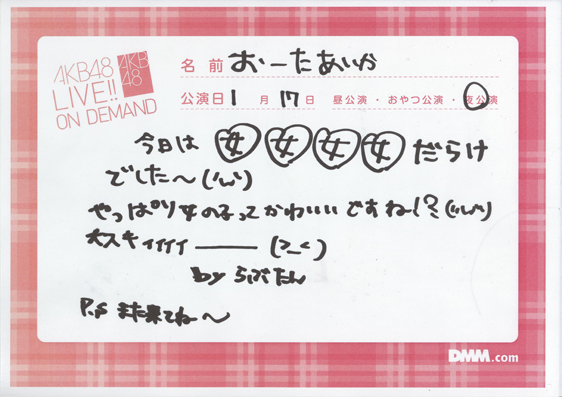 AKB48
LIVE!!
ON DEMAND
AKB
48
名前 おーたあいか
公演日 1月17日 昼公演・おやつ公演・夜公演
今日は女女女女だらけ
でした〜('ω')
やっぱり女の子ってかわいいですね!?('ω')
大スキィィィィ――― (>_<)
by らぶたん
P.S また来てね〜
DMM.com